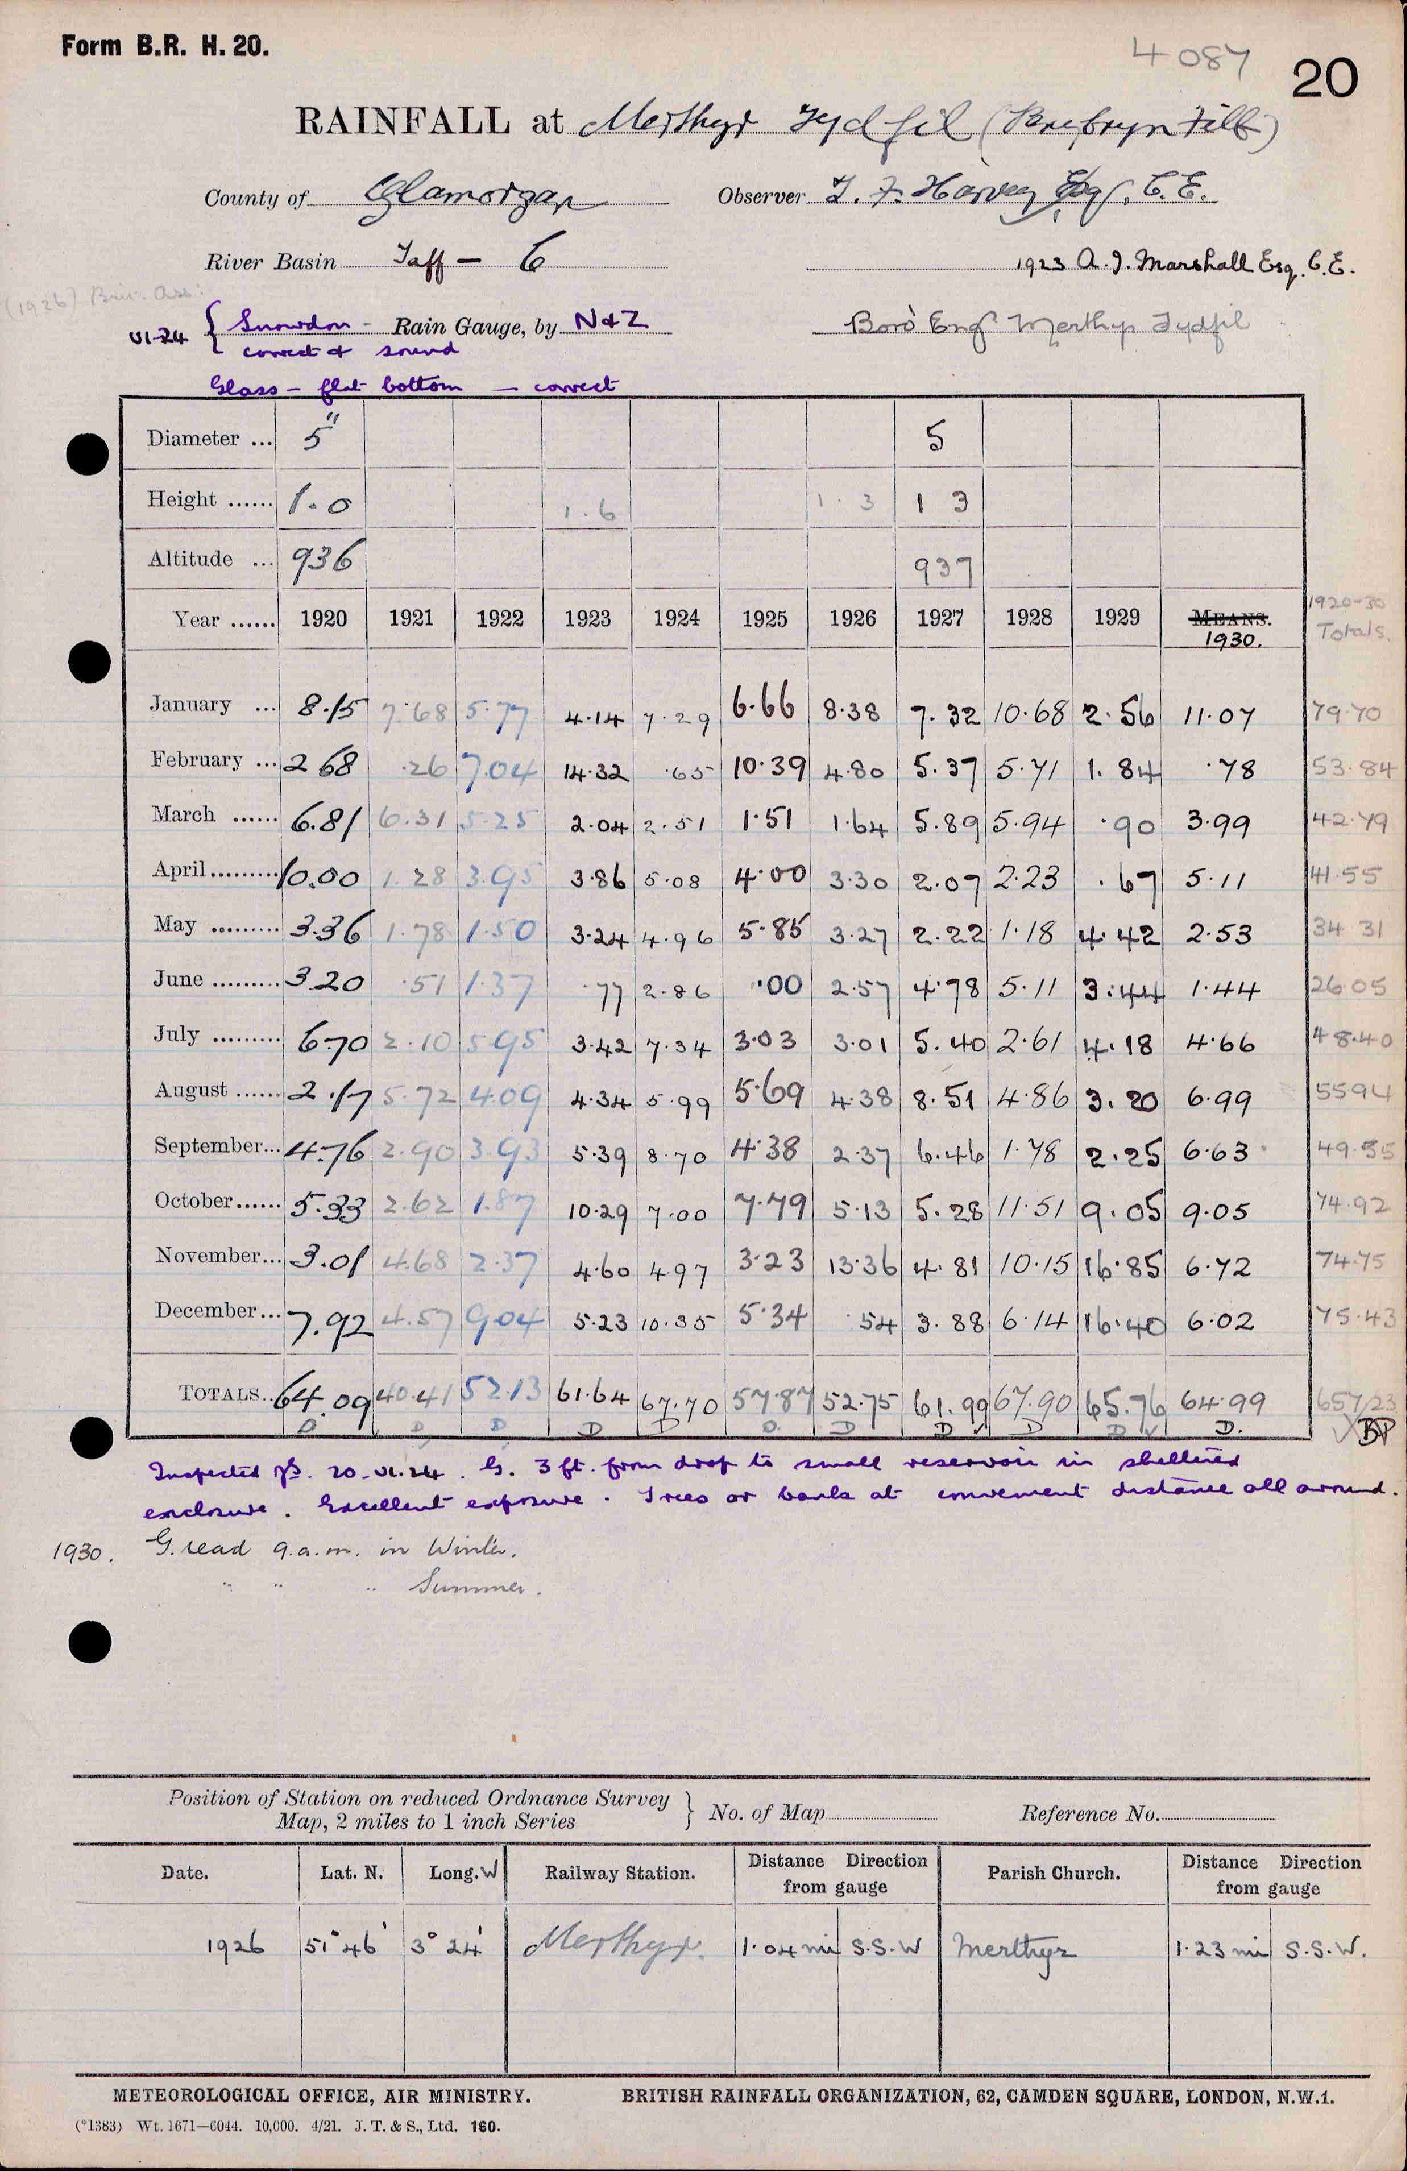 Form B.R. H. 20.
4087
20
RAINFALL at Merthyr Tydfil (Penybryn Filt)
County of Glamorgan Observer T. F. Harvey Esq., C.E.
River Basin Taff — 6 1923 A. J. Marshall Esq. C.E.
(1926) Brit. Ass:
VI-24 { Snowdon - Rain Gauge, by N & Z Boro' Engr Merthyr Tydfil
correct & sound
Glass - flat bottom - correct
Diameter ... 5" 5
Height ...... 1.0 1.6 1.3 1 3
Altitude ... 936 937
Year ...... 1920 1921 1922 1923 1924 1925 1926 1927 1928 1929 MEANS. 1930. 1920-30 Totals.
January ... 8.15 7.68 5.77 4.14 7.29 6.66 8.38 7.32 10.68 2.56 11.07 79.70
February ... 2 68 .26 7.04 14.32 .65 10.39 4.80 5.37 5.71 1.84 .78 53.84
March ...... 6.81 6.31 5.25 2.04 2.51 1.51 1.64 5.89 5.94 .90 3.99 42.79
April ......... 10.00 1.28 3.95 3.86 5.08 4.00 3.30 2.07 2.23 .67 5.11 41.55
May ......... 3.36 1.78 1.50 3.24 4.96 5.85 3.27 2.22 1.18 4.42 2.53 34 31
June ......... 3.20 .51 1.37 .77 2.86 .00 2.57 4.78 5.11 3.44 1.44 26.05
July ......... 6.70 2.10 5.95 3.42 7.34 3.03 3.01 5.40 2.61 4.18 4.66 48.40
August ...... 2.17 5.72 4.09 4.34 5.99 5.69 4.38 8.51 4.86 3.20 6.99 55 94
September... 4.76 2.90 3.93 5.39 8.70 4.38 2.37 6.46 1.78 2.25 6.63 49.55
October...... 5.33 2.62 1.87 10.29 7.00 7.79 5.13 5.28 11.51 9.05 9.05 74.92
November... 3.01 4.68 2.37 4.60 4.97 3.23 13.36 4.81 10.15 16.85 6.72 74.75
December... 7.92 4.57 9.04 5.23 10.35 5.34 .54 3.88 6.14 16.40 6.02 75.43
TOTALS.. 64.09 40.41 52.13 61.64 67.70 57.87 52.75 61.99 67.90 65.76 64.99 657/23
D D D D D D D D D D D. BP
Inspected 20.VI.24. G. 3 ft. from drop to small reservoir in sheltered
enclosure. Excellent exposure. Trees or banks at convenient distance all around.
1930. G. read 9 a.m. in Winter.
" " " Summer.
Position of Station on reduced Ordnance Survey
Map, 2 miles to 1 inch Series } No. of Map Reference No.
Date. Lat. N. Long. W Railway Station. Distance from gauge Direction Parish Church. Distance from gauge Direction
1926 51° 46' 3° 24' Merthyr. 1.04 mi S.S.W Merthyr 1.23 mi S.S.W.
METEOROLOGICAL OFFICE, AIR MINISTRY. BRITISH RAINFALL ORGANIZATION, 62, CAMDEN SQUARE, LONDON, N.W.1.
(*1383) Wt. 1671—6044. 10,000. 4/21. J. T. & S., Ltd. 160.